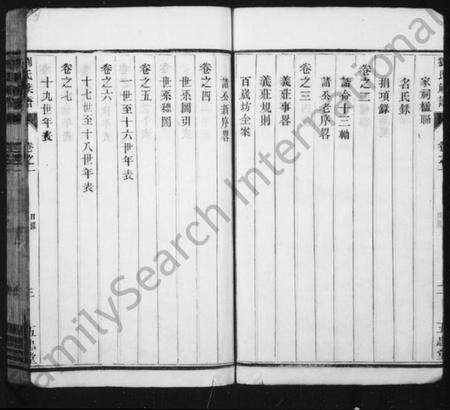 家祠楹聯
名氏錄
捐項錄
卷之二
誥命十三軸
諸公老序畧
卷之三
義莊事畧
義莊規則
百歲坊全案
諸公新序畧
卷之四
世系圖引
世系總圖
卷之五
一世至十六世年表
卷之六
十七世至十八世年表
卷之七
十九世年表
劉氏族譜
卷之一
目錄
三
五忠堂
FamilySearch International